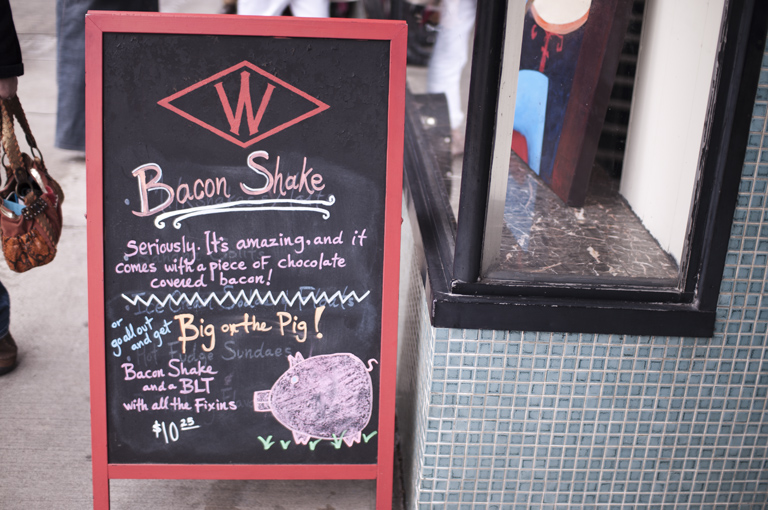 W
Bacon Shake
Seriously. It's amazing. and it
comes with a piece of chocolate
covered bacon!
or
go all out
and get
Big on the Pig!
Hot Fudge Sundaes
Bacon Shake
and a BLT
with all the Fixins
$10.25